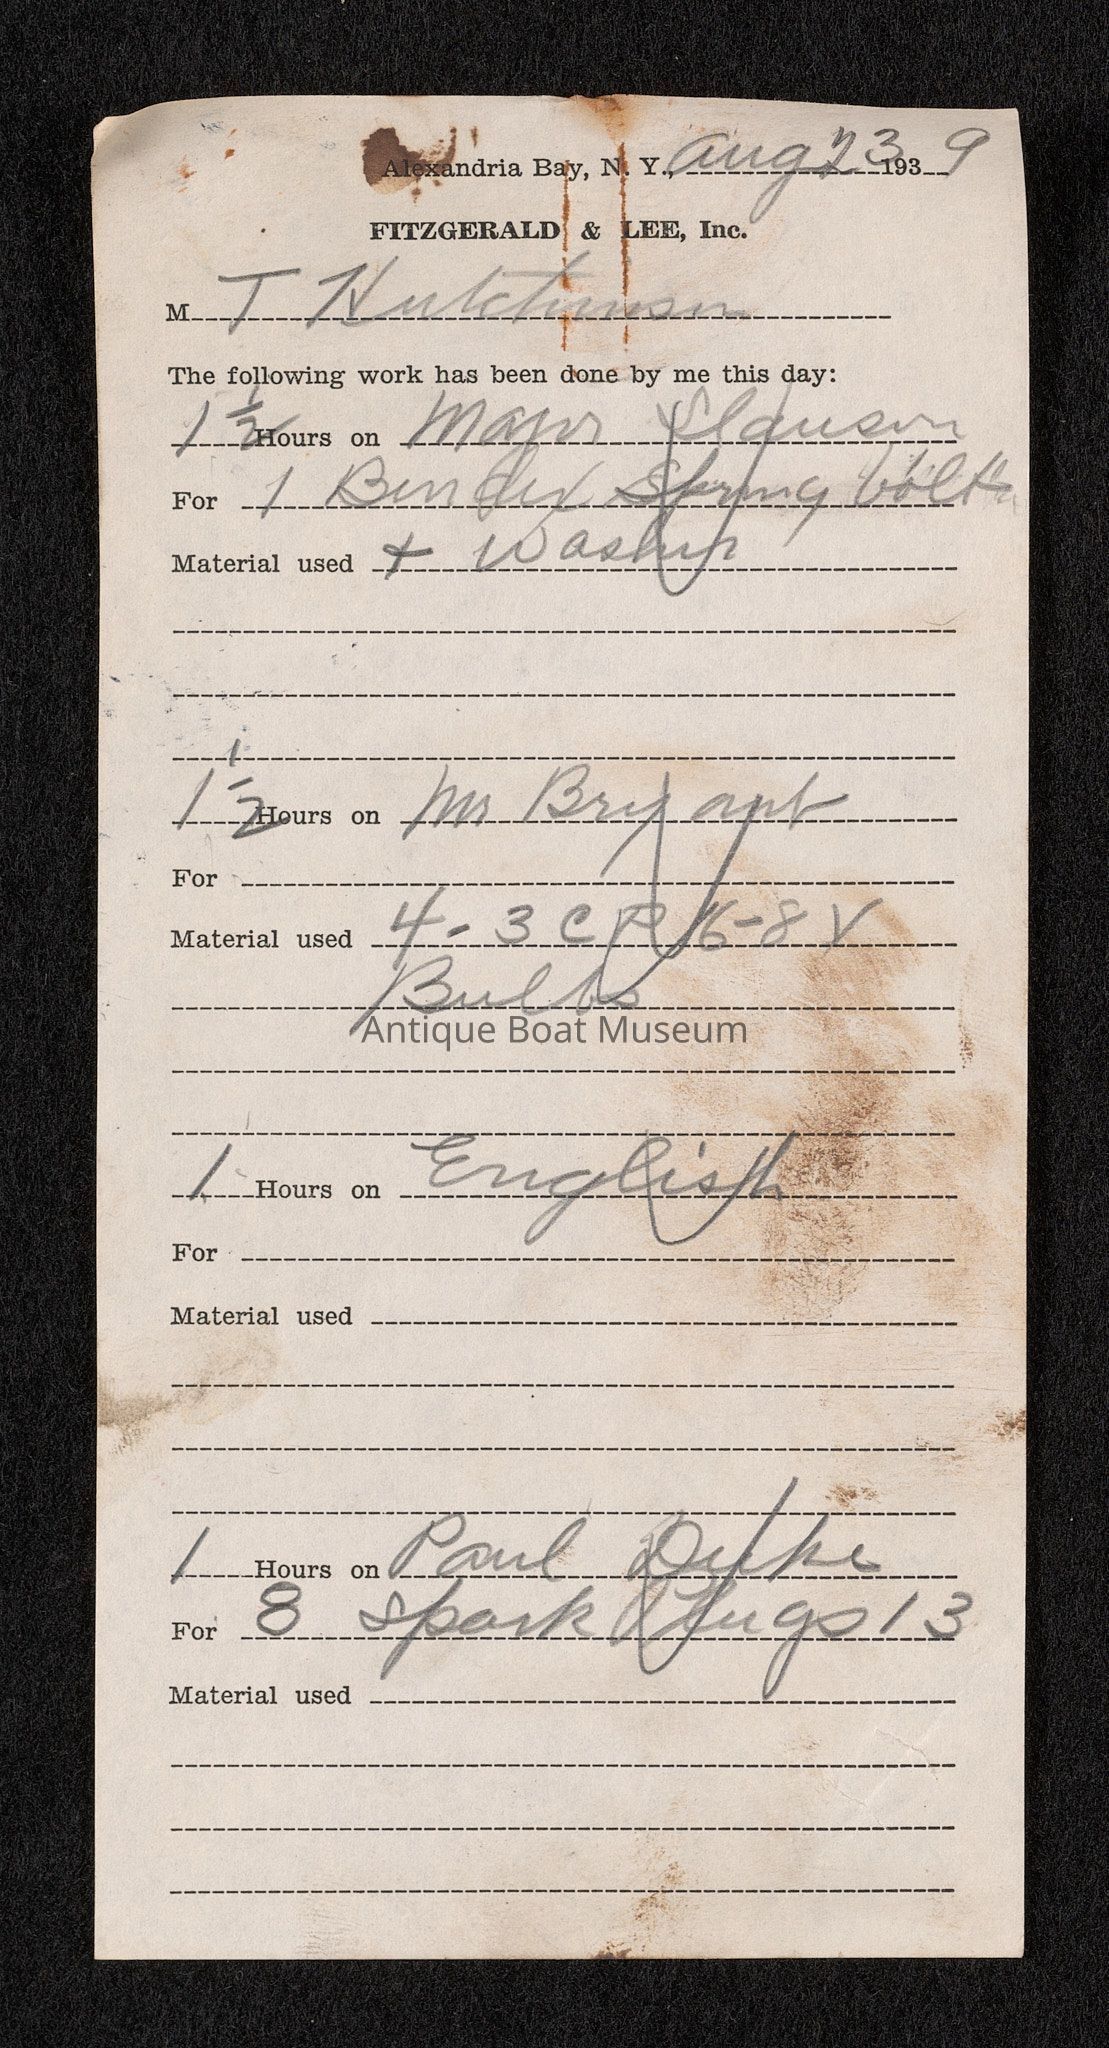 Alexandria Bay, N. Y., Aug 23 1939
FITZGERALD & LEE, Inc.
M T Hutchinson
The following work has been done by me this day:
1 1/2 Hours on Major Slauson
For 1 Bendix Spring bolt
Material used + Washer
1 1/2 Hours on Mr Bryant
For
Material used 4 - 3 C P 6-8 V
Bulbs
Antique Boat Museum
1 Hours on English
For
Material used
1 Hours on Paul Duke
For 8 Spark Plugs 13
Material used